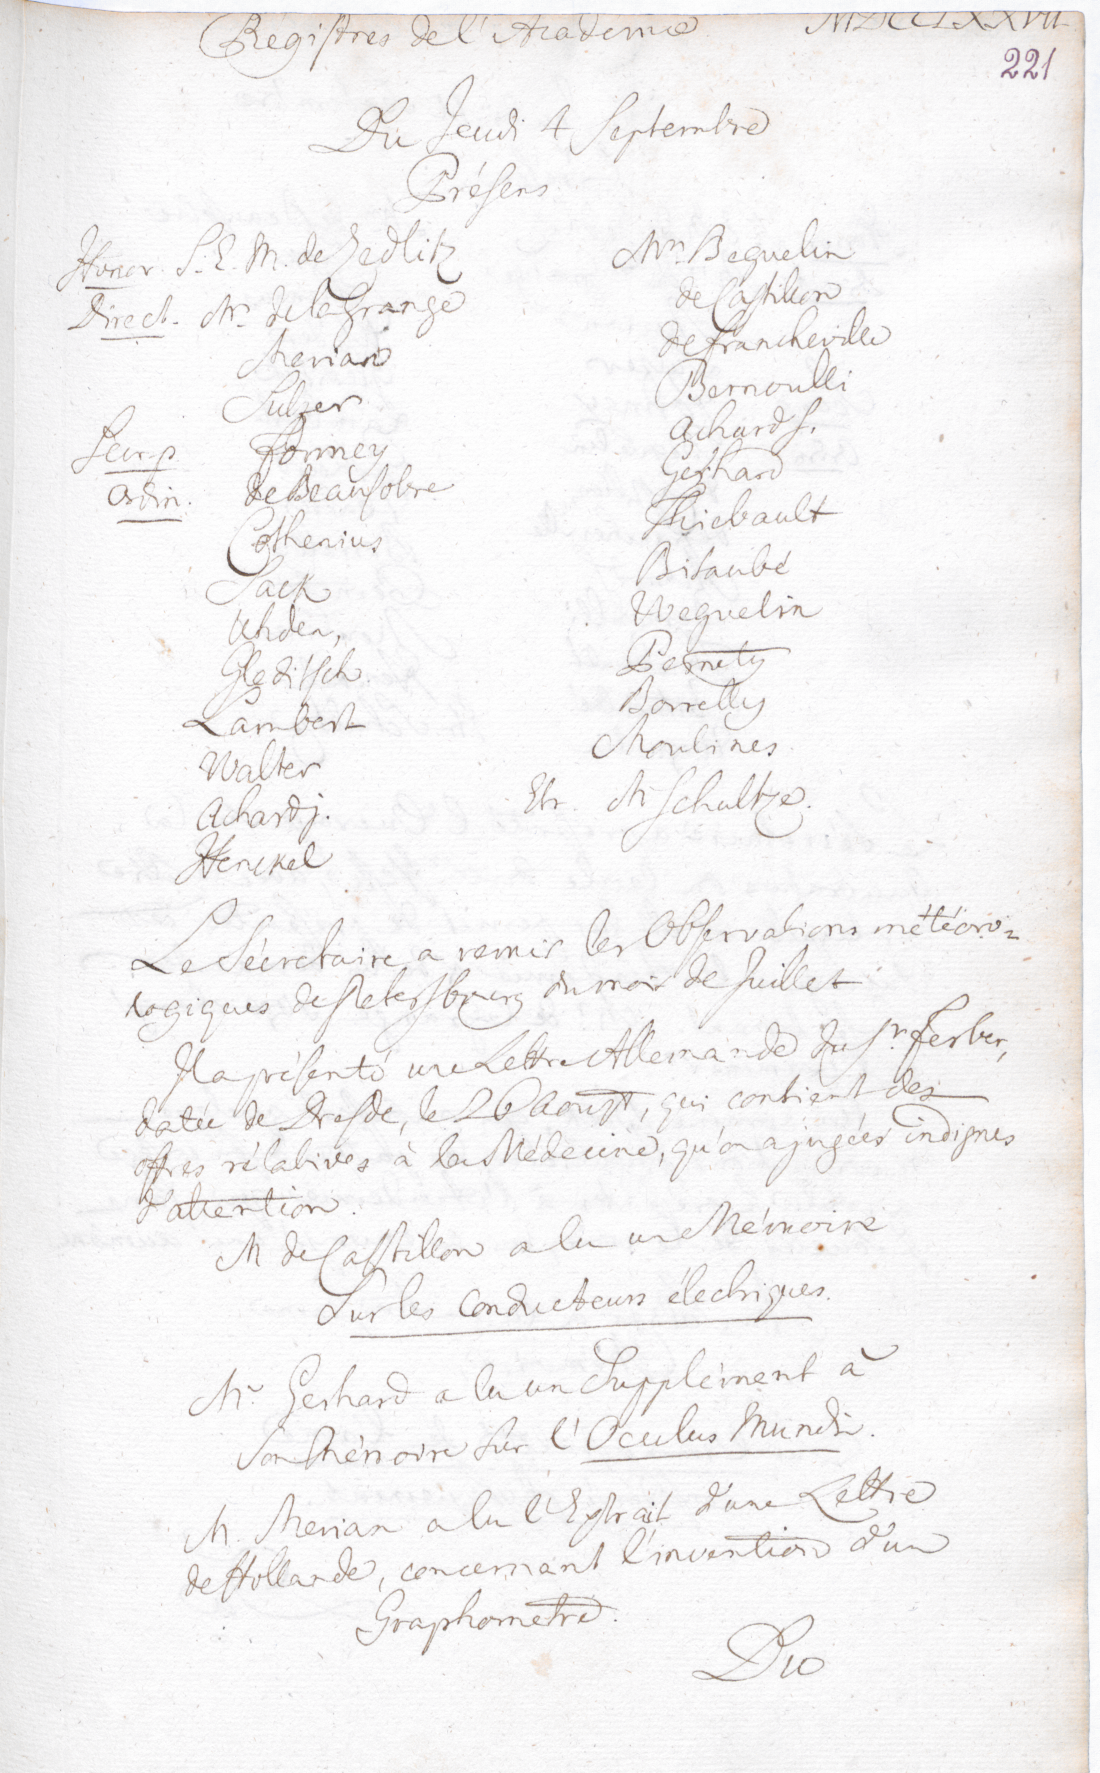 Régistres de l'Academie MDCCLXXVII
221
Du Jeudi 4 Septembre
Présens
Honor. S. E. M. de Zedlitz
Direct. Mrs. de la Grange
Merian
Sulzer
Secr. p Formey
Ordin. de Beausobre
Cothenius
Sack
Uhden,
Gleditsch.
Lambert
Walter
Achard j.
Henckel
Mrs. Beguelin
de Castillon
de Francheville
Bernoulli
Achard s.
Gerhard
Thiebault
Bitaubé
Weguelin
Pernety
Borrelly
Moulines
Etr. Mr Schultze.
Le Sécretaire a remis les Observations météoro=
logiques de Petersbourg du mois de Juillet
Il a présenté une Lettre Allemande du Sr. Ferber,
datée de Dresde, le 26 Aoust, qui contient des
offres rélatives à la Médecine, qu'on a jugées indignes
d'attention.
M de Castillon a lu un Mémoire
Sur les conducteurs électriques.
Mr. Gerhard a lu un Supplément à
son Mémoire sur l'Oculus Mundi.
M. Merian a lu l'Extrait d'une Lettre
de Hollande, concernant l'invention d'un
Graphometre.
Du